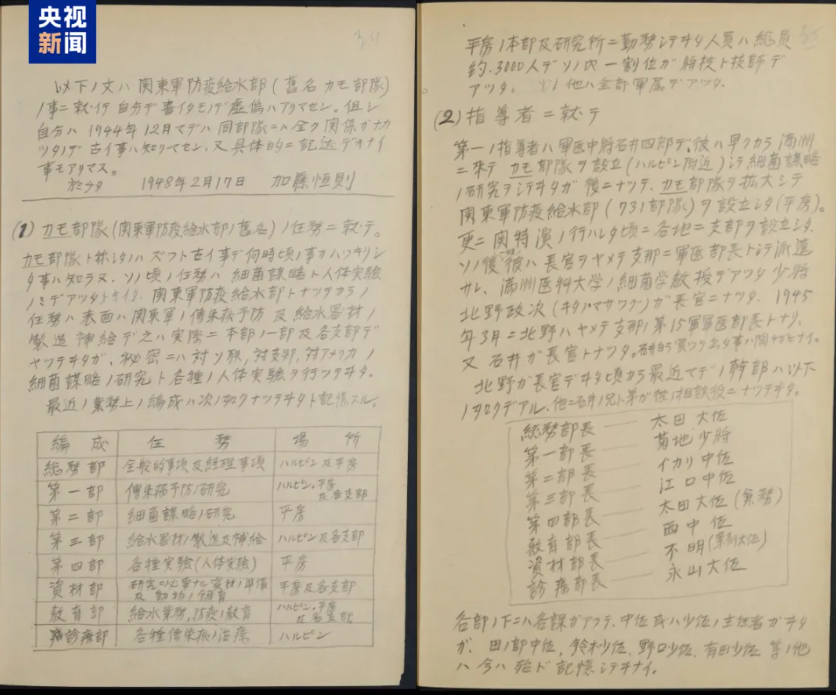 央视
新闻
以下ノ文ハ関東軍防疫給水部(舊名カモ部隊)
ノ事ニ就イテ自分デ書イタモノデ虚偽ハアリマセン。但シ
自分ハ1944年12月マデハ同部隊ニハ全ク関係ガナカ
ツタノデ古イ事ハ知リマセン、又具体的ニ記述デキナイ
事モアリマス。
1948年2月17日 加藤恒則
(1) カモ部隊(関東軍防疫給水部ノ舊名)ノ任務ニ就テ。
カモ部隊ト称シタノハズツト古イ事デ何時頃ノ事カハツキリシ
タ事ハ知ラヌ、ソノ頃ノ任務ハ細菌謀略ト人体実験
ノミデアツタトイフ、関東軍防疫給水部トナツテカラノ
任務ハ表面ハ関東軍ノ傳染病予防及給水器材ノ
製造補給デ之ハ実際ニ本部ノ一部及各支部デ
ヤツテヰタガ、秘密ニハ対ソ聯、対支那、対アメリカノ
細菌謀略ノ研究ト各種ノ人体実験ヲ行ツテヰタ。
最近ノ業務上ノ編成ハ次ノ如クナツテヰタト記憶スル。
編成 任務 場所
総務部 全般的事項及経理事項 ハルピン及平房
第一部 傳染病予防ノ研究 ハルピン、平房及各支部
第二部 細菌謀略ノ研究 平房
第三部 給水器材ノ製造及補給 ハルピン及各支部
第四部 各種実験(人体実験) 平房
資材部 研究ニ必要ナル資材ノ準備及動物ノ飼育 平房及各支部
教育部 給水業務、防疫ノ教育 ハルピン、平房及各支部
診療部 各種傳染病ノ治療 ハルピン
平房ノ本部及研究所ニ勤務シテヰタ人員ハ総員
約3000人デソノ内一割位ガ将校ト技師デ
アツタ。ソノ他ハ全部軍属デアツタ。
(2) 指導者ニ就テ
第一ノ指導者ハ軍医中将石井四郎デ、彼ハ早クカラ満洲
ニ来テカモ部隊ヲ設立(ハルピン附近)シテ細菌謀略
ノ研究ヲシテヰタガ後ニナツテ、カモ部隊ヲ拡大シテ
関東軍防疫給水部(731部隊)ヲ設立シタ(平房)。
更ニ関特演ノ行ハレタ頃ニ各地ニ支部ヲ設立シタ、
ソノ後彼ハ長官ヲヤメテ支那ニ軍医部長トシテ派遣
サレ、満洲医科大学ノ細菌学教授デアツタ少将
北野政次(キタノマサツグ)ガ長官ニナツタ、1945
年3月ニ北野ハヤメテ支那ノ第15軍軍医部長トナリ、
又石井ガ長官トナツタ。
北野ガ長官デヰタ頃カラ最近マデノ幹部ハ以下
ノ如クデアル、他ニ石井ノ兄ト弟ガ
総務部長 — 太田大佐
第一部長 — 菊地少将
第二部長 — イカリ中佐
第三部長 — 江口中佐
第四部長 — 太田大佐(兼務)
教育部長 — 西中佐
資材部長 — 不明
診療部長 — 永山大佐
各部ノ下ニハ各課ガアツテ、中佐或ハ少佐ノ主任者ガヰタ
ガ、田ノ部中佐、鈴木少佐、野口少佐、有田少佐等ノ他
ハ今ハ殆ド記憶シテヰナイ。